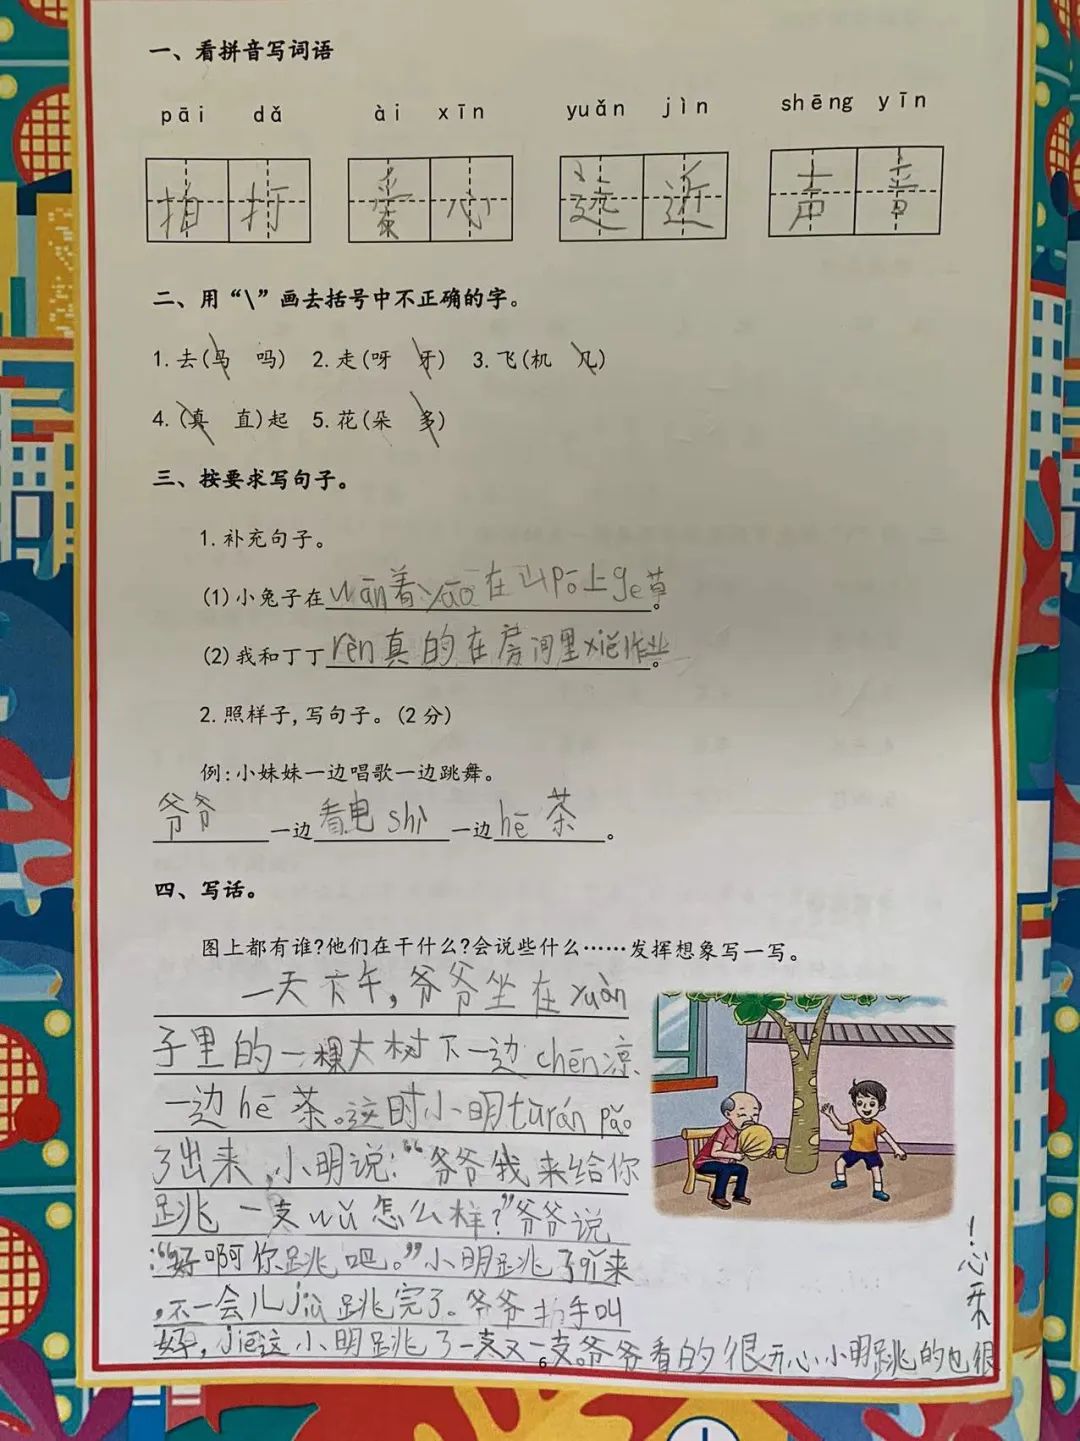 一、看拼音写词语
pāi dǎ ài xīn yuǎn jìn shēng yīn
拍打 爱心 远近 声音
二、用“\”画去括号中不正确的字。
1.去(鸟 吗) 2.走(呀 牙) 3.飞(机 凡)
4.(真 直)起 5.花(朵 多)
三、按要求写句子。
1.补充句子。
(1)小兔子在wān着yāo在山pō上ge草。
(2)我和丁丁rèn真的在房间里xiě作业。
2.照样子,写句子。(2分)
例:小妹妹一边唱歌一边跳舞。
爷爷一边看电shì一边hē茶。
四、写话。
图上都有谁?他们在干什么?会说些什么……发挥想象写一写。
一天下午,爷爷坐在yuàn
子里的一棵大树下一边chēn凉
一边hē茶。这时小明tūrán pǎo
了出来,小明说:“爷爷我来给你
跳一支wǔ怎么样?”爷爷说
:“好啊你跳吧。”小明跳了qǐ来
,不一会儿jiù跳完了。爷爷拍手叫
好,jiē这小明跳了一支又一支。爷爷看的很开心小明跳的也很
开心!
6